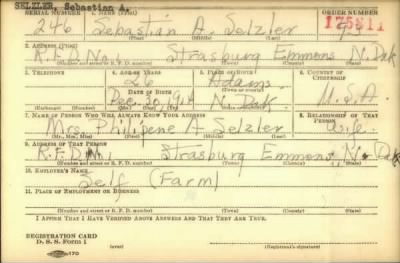 SELZLER, Sebastian A.
SERIAL NUMBER 1. NAME (Print) ORDER NUMBER
246 Sebastian A. Selzler 175811
(First) (Middle) (Last)
2. ADDRESS (Print)
R.F.D. No. 1 Strasburg Emmons N. Dak
(Number and street or R. F. D. number) (Town) (County) (State)
3. TELEPHONE 4. AGE IN YEARS 5. PLACE OF BIRTH 6. COUNTRY OF CITIZENSHIP
Adams
(Town or county)
DATE OF BIRTH
Dec. N. Dak. U.S.A.
(Exchange) (No.) (Mo.) (Day) (Yr.) (State or country)
7. NAME OF PERSON WHO WILL ALWAYS KNOW YOUR ADDRESS 8. RELATIONSHIP OF THAT PERSON
Mrs. Philipene A Selzler wife
(Mr., Mrs., Miss) (First) (Middle) (Last)
9. ADDRESS OF THAT PERSON
R.F.D. No. 1 Strasburg Emmons, N. Dak
(Number and street or R. F. D. number) (Town) (County) (State)
10. EMPLOYER'S NAME
Self (Farm)
11. PLACE OF EMPLOYMENT OR BUSINESS
(Number and street or R. F. D. number) (Town) (County) (State)
I AFFIRM THAT I HAVE VERIFIED ABOVE ANSWERS AND THAT THEY ARE TRUE.
REGISTRATION CARD
D. S. S. Form 1 (over) (Registrant's signature)